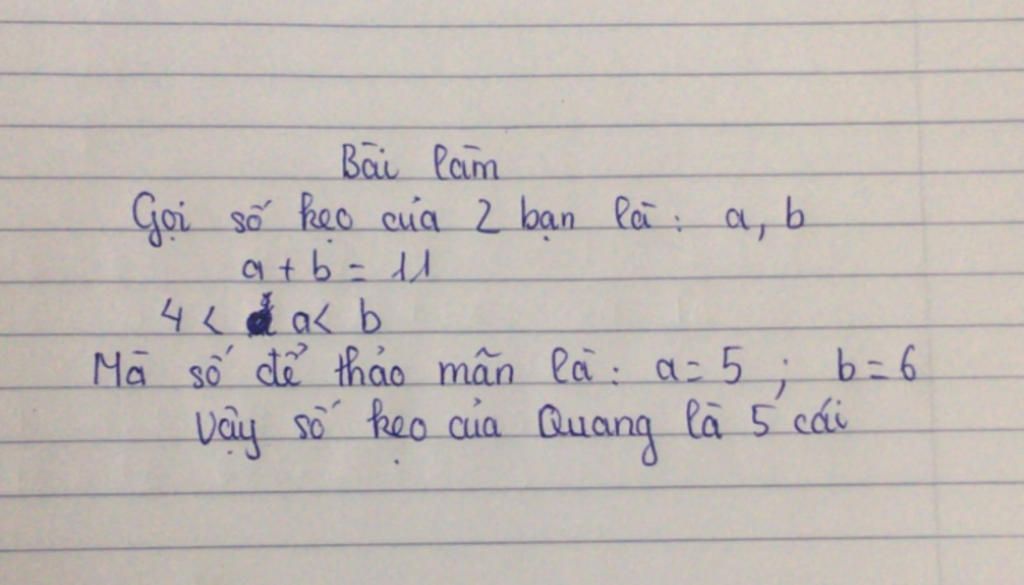 Bài làm
Gọi số kẹo của 2 bạn là: a, b
a + b = 11
4 < a < b
Mà số để thảo mãn là: a = 5 ; b = 6
Vậy số kẹo của Quang là 5 cái